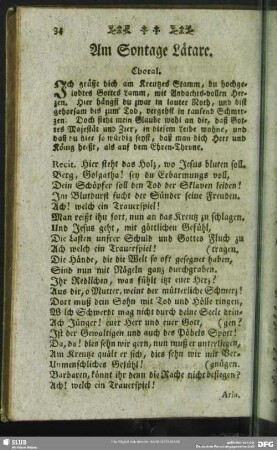 34
Am Sontage Lätare.
Choral.
Ich grüße dich am Kreutzes Stamm, du hochge-
lobtes Gottes Lamm, mit Andachts-vollen Her-
zen. Hier hängst du zwar in lauter Noth, und bist
gehorsam bis zum Tod, vergehst in tausend Schmer-
zen: Doch sieht mein Glaube wohl an dir, daß Got-
tes Majestät und Zier, in diesem Leibe wohne, und
daß du hier so würdig seyst, daß man dich Herr und
König heißt, als auf dem Ehren-Throne.
Recit. Hier steht das Holz, wo Jesus bluten soll.
Berg, Golgatha! sey du Erbarmungs voll,
Dein Schöpfer soll den Tod der Sklaven leiden!
Im Blutdurst sucht der Sünder seine Freuden.
Ach! welch ein Trauerspiel!
Man reißt ihn fort, nun an das Kreutz zu schlagen,
Und Jesus geht, mit göttlichen Gefühl,
Die Lasten unsrer Schuld und Gottes Fluch zu
Ach welch ein Trauerspiel! (tragen,
Die Hände, die die Welt so oft gesegnet haben,
Sind nun mit Nägeln ganz durchgraben.
Ihr Redlichen, was fühlt itzt euer Herz?
Aus dir, o Mutter, weint der mütterliche Schmerz;
Dort muß dein Sohn mit Tod und Hölle ringen,
Welch Schwerdt mag nicht durch deine Seele drin-
Ach Jünger! euer Herr und euer Gott, (gen?
Ist der Gewaltigen und auch des Pöbels Spott!
Da, da! dies sehn wir gern, nun muß er unterliegen,
Am Kreutze quält er sich, dies sehn wir mit Ver-
Unmenschliches Gefühl! (gnügen.
Barbaren, könnt ihr denn die Rache nicht besiegen?
Ach! welch ein Trauerspiel!
Aria.
SLUB
DFG